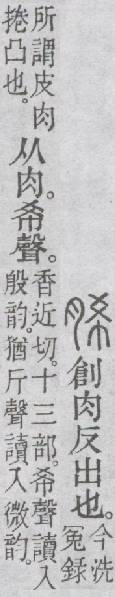 脪創肉反出也。今洗
冤錄
所謂皮肉
捲凸也。
从肉。希聲。
香近切。十三部。希聲讀入
殷韵。猶斤聲讀入微韵。